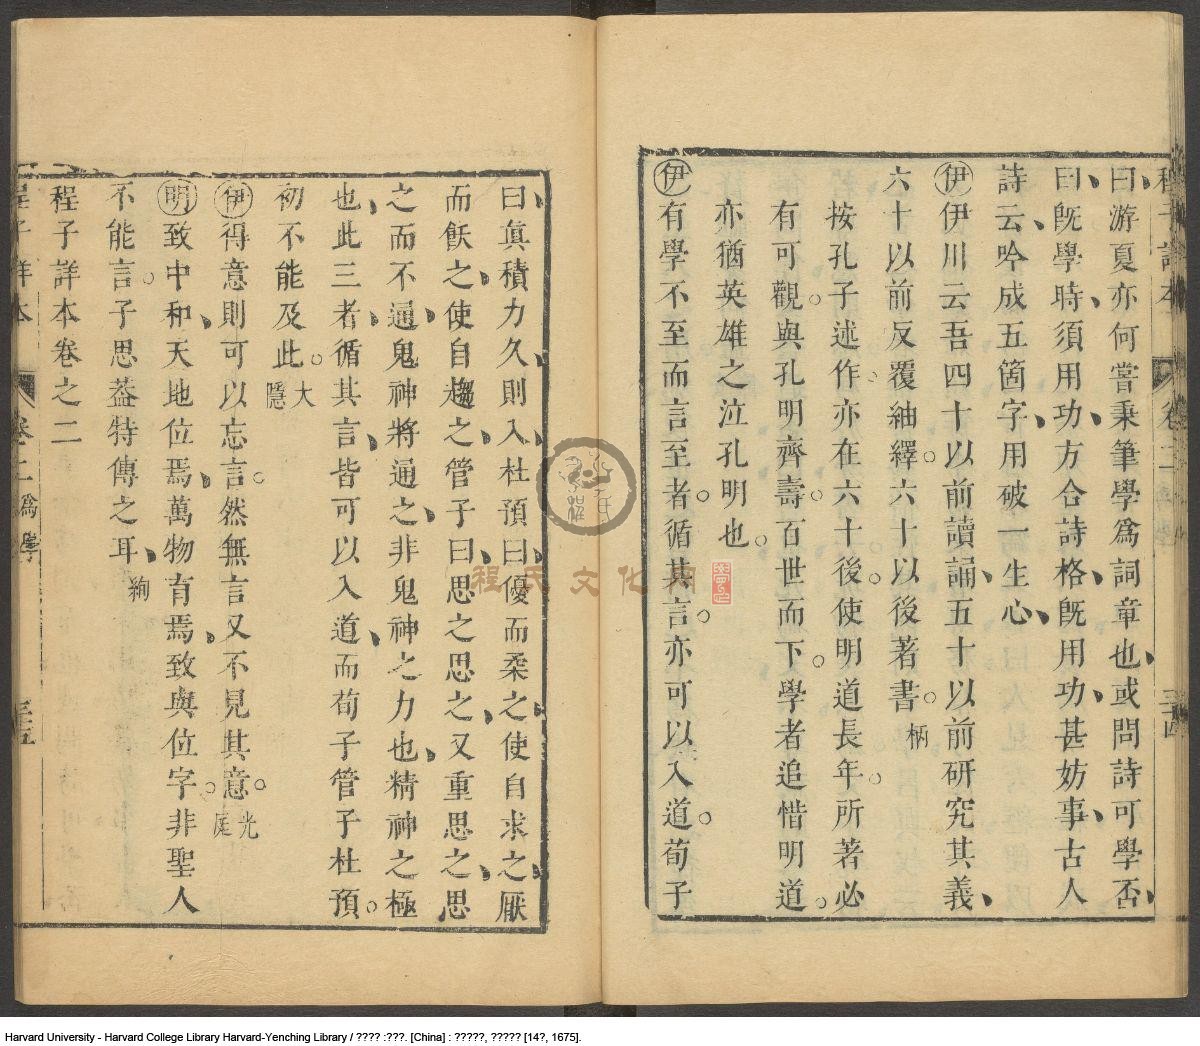 曰游夏亦何嘗秉筆學爲詞章也或問詩可學否
曰旣學時須用功方合詩格旣用功甚妨事古人
詩云吟成五箇字用破一生心
伊伊川云吾四十以前讀誦五十以前研究其義
六十以前反覆紬繹六十以後著書柄
按孔子述作亦在六十後使明道長年所著必
有可觀與孔明齊壽百世而下學者追惜明道
亦猶英雄之泣孔明也
伊有學不至而言至者循其言亦可以入道荀子
曰眞積力久則入杜預曰優而柔之使自求之厭
而飫之使自趨之管子曰思之思之又重思之思
之而不通鬼神將通之非鬼神之力也精神之極
也此三者循其言皆可以入道而荀子管子杜預
初不能及此大隱
伊得意則可以忘言然無言又不見其意光庭
明致中和天地位焉萬物育焉致與位字非聖人
不能言子思葢特傳之耳絢
程子詳本卷之二
程子詳本
卷二
爲學
三五
程氏文化網
Harvard University - Harvard College Library Harvard-Yenching Library / ???? :???. [China] : ?????, ????? [14?, 1675].